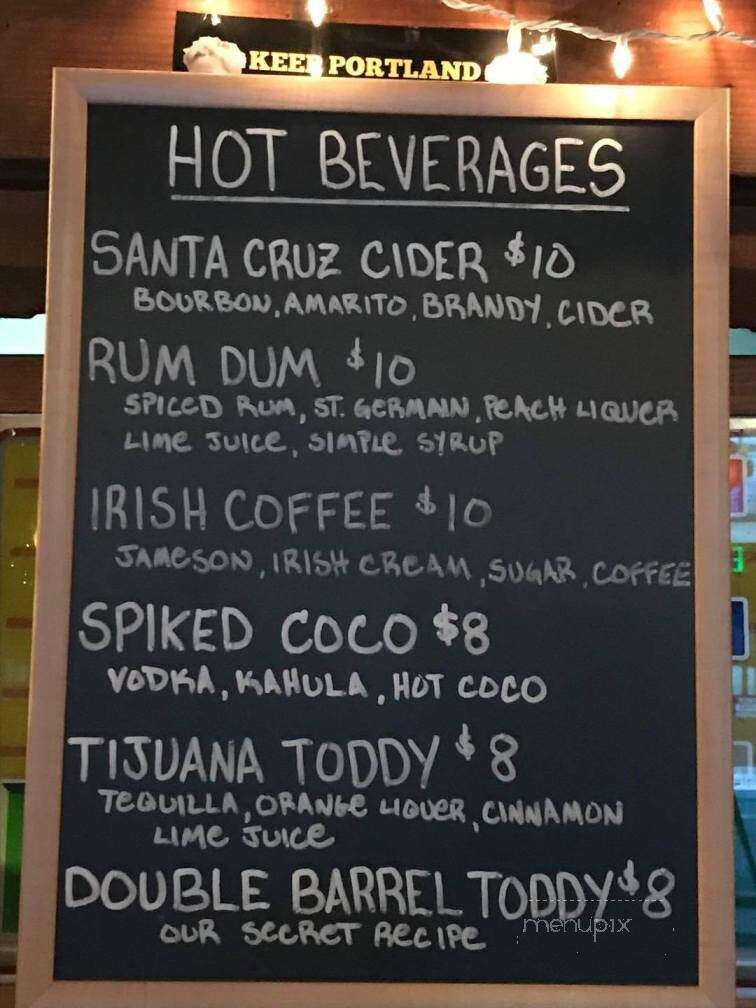 KEEP PORTLAND
HOT BEVERAGES
SANTA CRUZ CIDER $10
BOURBON, AMARITO, BRANDY, CIDER
RUM DUM $10
SPICED RUM, ST. GERMAIN, PEACH LIQUER
LIME JUICE, SIMPLE SYRUP
IRISH COFFEE $10
JAMESON, IRISH CREAM, SUGAR, COFFEE
SPIKED COCO $8
VODKA, KAHULA, HOT COCO
TIJUANA TODDY $8
TEQUILLA, ORANGE LIQUER, CINNAMON
LIME JUICE
DOUBLE BARREL TODDY $8
OUR SECRET RECIPE
menupix